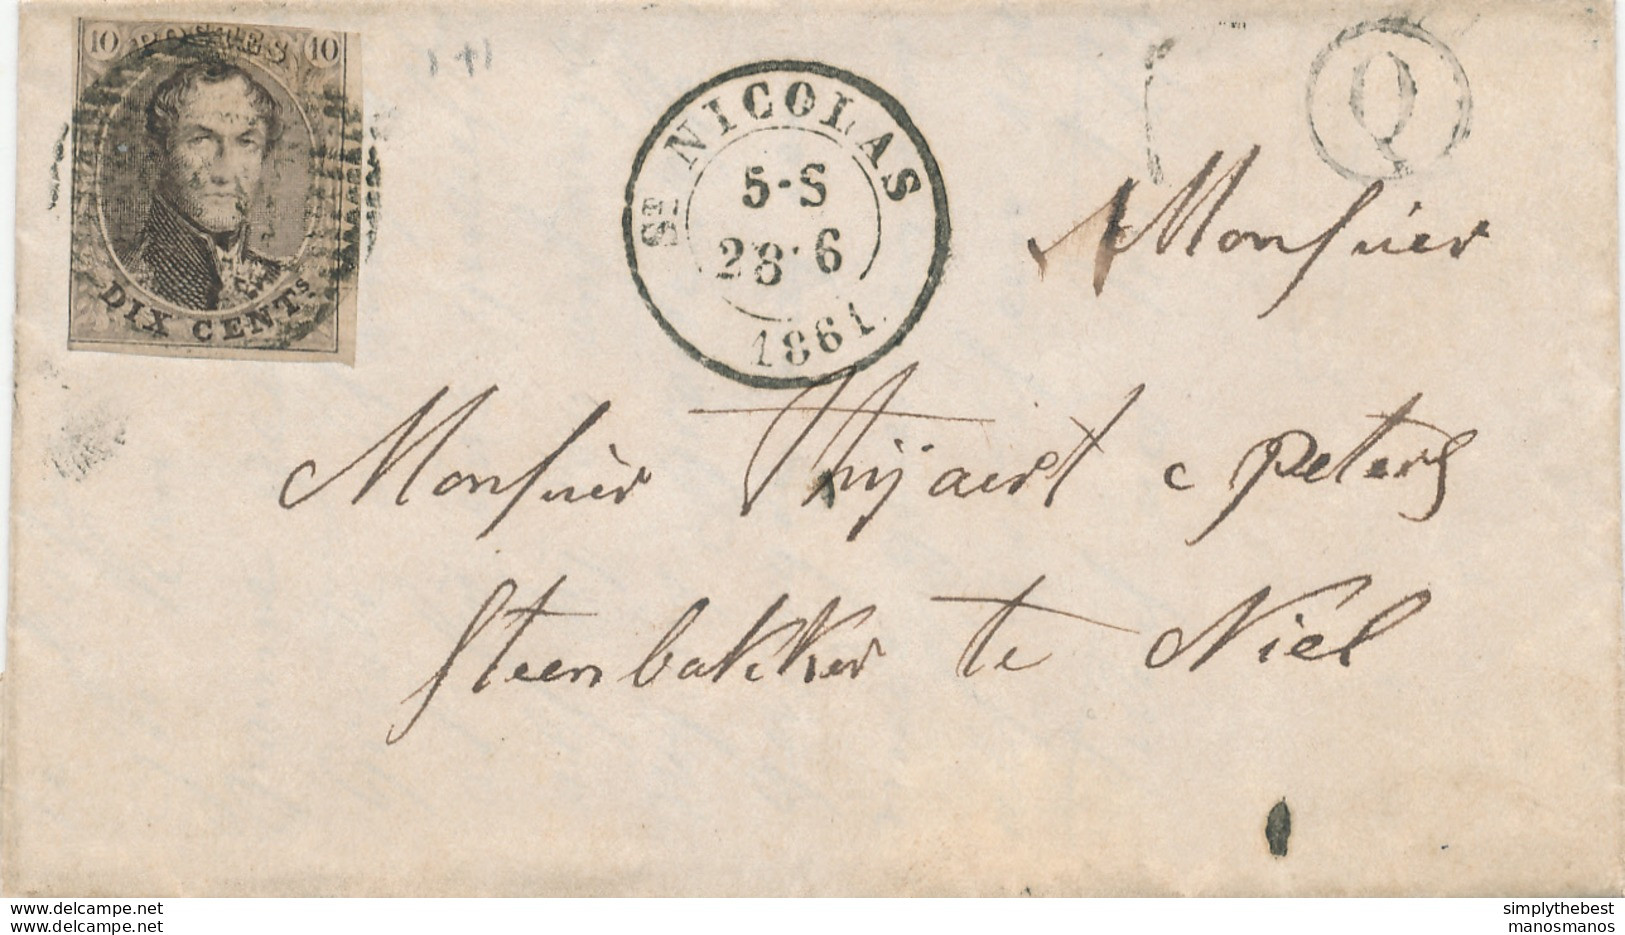 10 POSTES 10
DIX CENTS.
ST NICOLAS
5-S
28·6
1861.
Q
Monsieur
Monsieur Thijaert c Peters
Steenbakker te Niel
www.delcampe.net
simplythebest
manosmanos